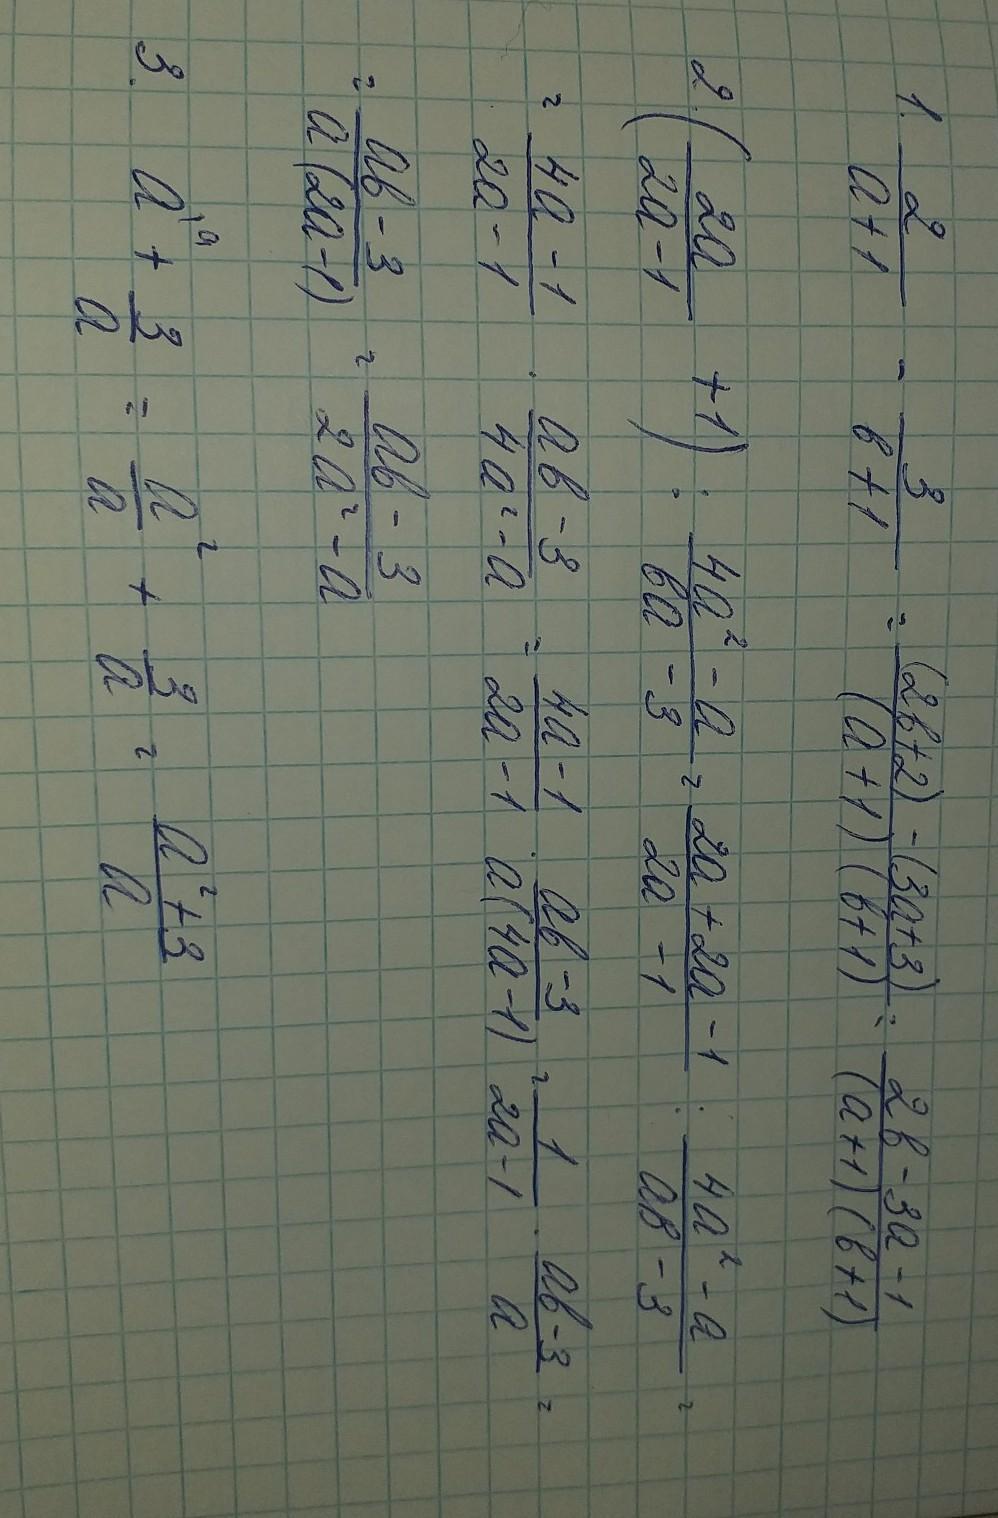 1. 2/(a+1) - 3/(b+1) = ((2b+2)-(3a+3))/((a+1)(b+1)) = (2b-3a-1)/((a+1)(b+1))
2. (2a/(2a-1) +1) : (4a²-a)/(ba-3) = (2a+2a-1)/(2a-1) : (4a²-a)/(ab-3) =
= (4a-1)/(2a-1) · (ab-3)/(4a²-a) = (4a-1)/(2a-1) · (ab-3)/(a(4a-1)) = 1/(2a-1) · (ab-3)/a =
= (ab-3)/(a(2a-1)) = (ab-3)/(2a²-a)
3. a\a + 3/a = a²/a + 3/a = (a²+3)/a